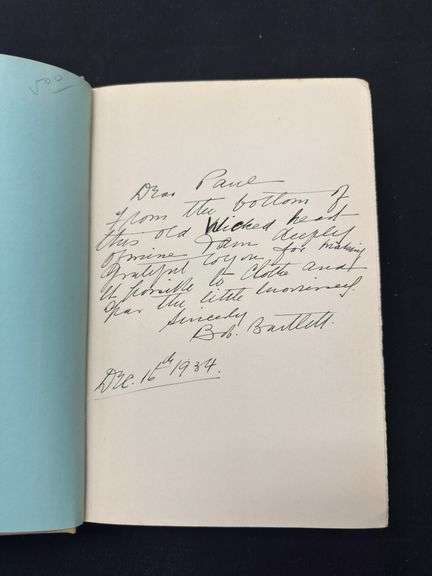 500
Dear Paul
From the bottom of
this old Wicked heart
of mine I am deeply
grateful to you for making
it possible to Clothe and
the little
Sincerely
Bob. Bartlett.
Dec. 16th 1934.